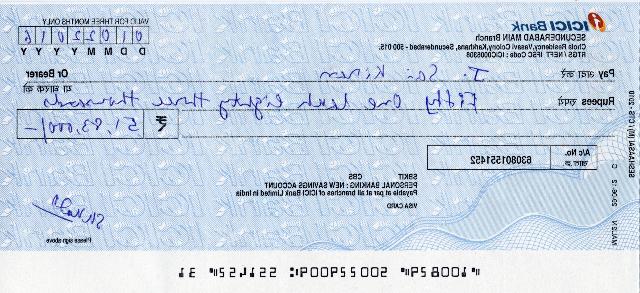 ICICI Bank
SECUNDERABAD MAIN Branch
Chois Residency, Vasavi Colony, Karkhana, Secunderabad, - 500 015.
RTGS / NEFT IFSC Code : ICIC0006308
VALID FOR THREE MONTHS ONLY
01022016
D D M M Y Y Y Y
Pay J. Sai Kiran Or Bearer
अदा करें या धारक को
Rupees रुपये Fifty One lakh Eighty three thousand
₹ 51,83,000/-
A/c No. 630801551452
खाता क्र.
SBKIT CBS
PERSONAL BANKING : NEW SAVINGS ACCOUNT
Payable at par at all branches of ICICI Bank Limited in India
VISA CARD
Please sign above